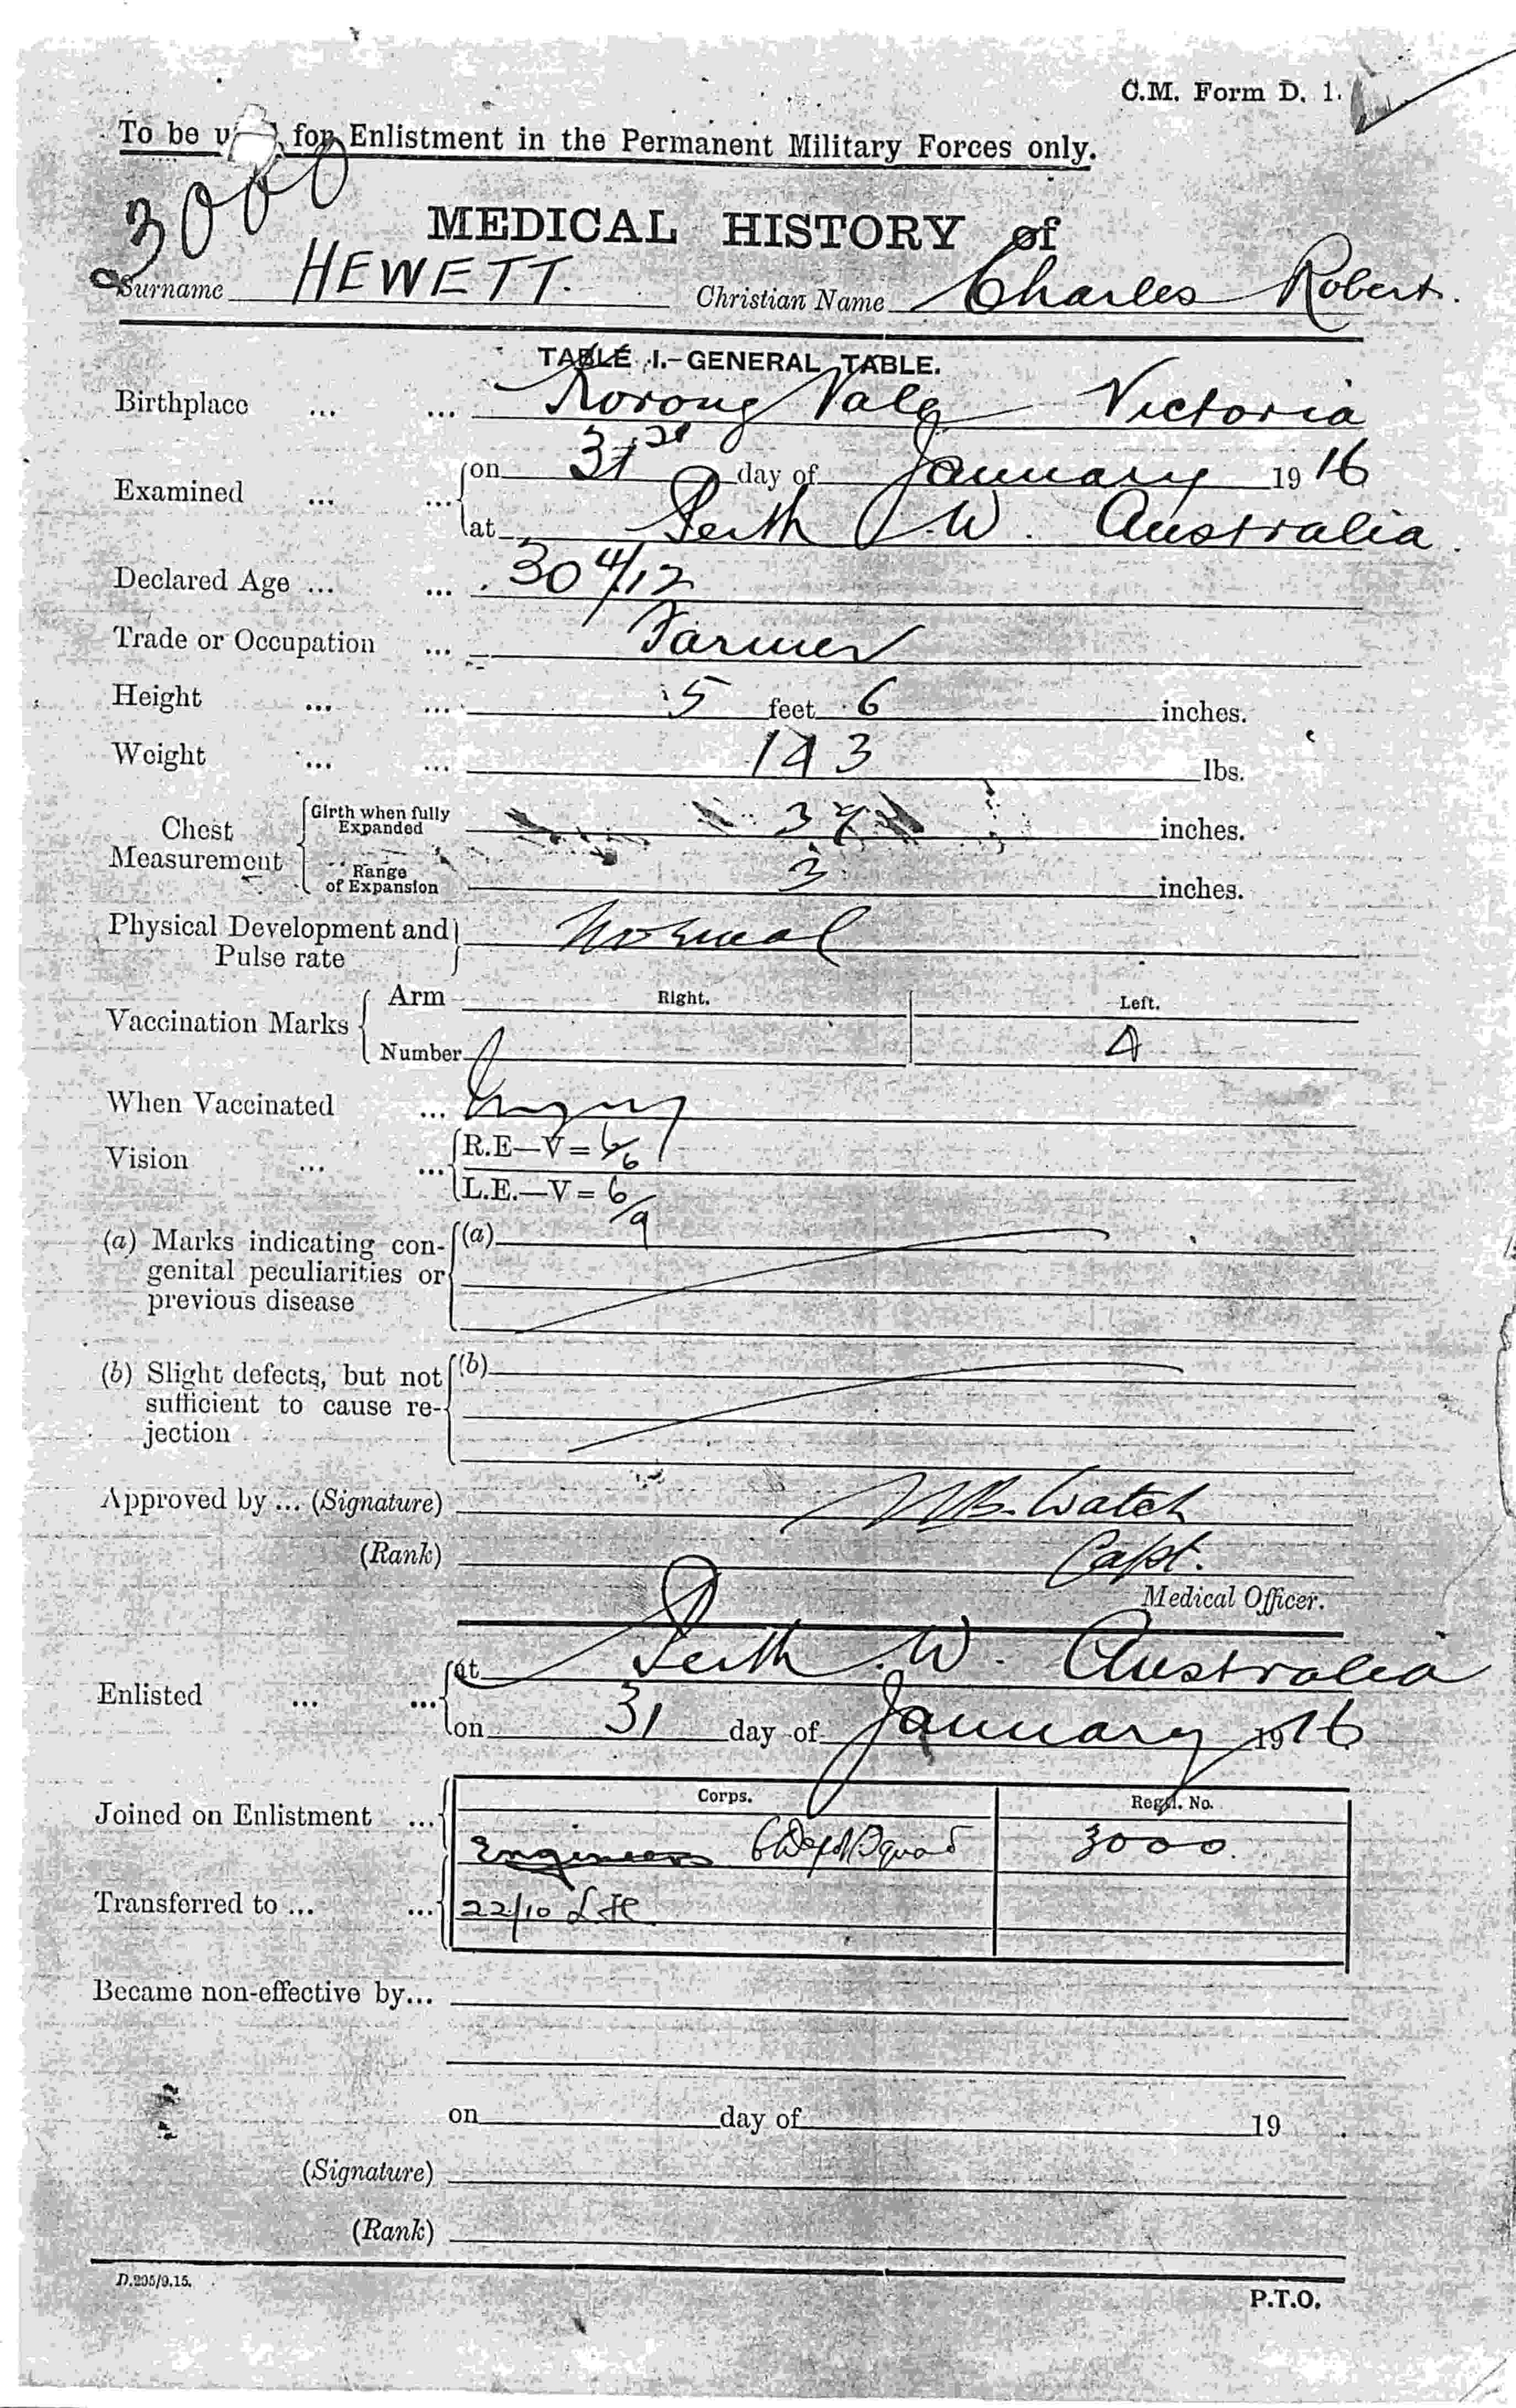 C.M. Form D. 1.
To be u for Enlistment in the Permanent Military Forces only.
3000
MEDICAL HISTORY of
Surname HEWETT. Christian Name Charles Robert.
TABLE I.-GENERAL TABLE.
Birthplace ... ... Korong Vale Victoria
Examined ... ... on 31st day of January 19 16
at Perth W. Australia.
Declared Age ... ... 30 4/12
Trade or Occupation ... Farmer
Height ... ... 5 feet 6 inches.
Weight ... ... 143 lbs.
Chest Measurement Girth when fully Expanded inches.
Range of Expansion 3 inches.
Physical Development and Pulse rate Normal
Vaccination Marks Arm Right. Left.
Number 4
When Vaccinated ...
Vision ... ... R.E—V= 6/6
L.E.—V= 6/9
(a) Marks indicating con- (a)
genital peculiarities or
previous disease
(b) Slight defects, but not (b)
sufficient to cause re-
jection
Approved by ... (Signature)
(Rank) Capt.
Medical Officer.
Enlisted ... ... at Perth W. Australia
on 31 day of January 1916
Corps. Regtl. No.
Joined on Enlistment ... Engineers Squad 3000.
Transferred to ... ... 22/10 LH
Became non-effective by...
on day of 19 .
(Signature)
(Rank)
D.295/9.15.
P.T.O.